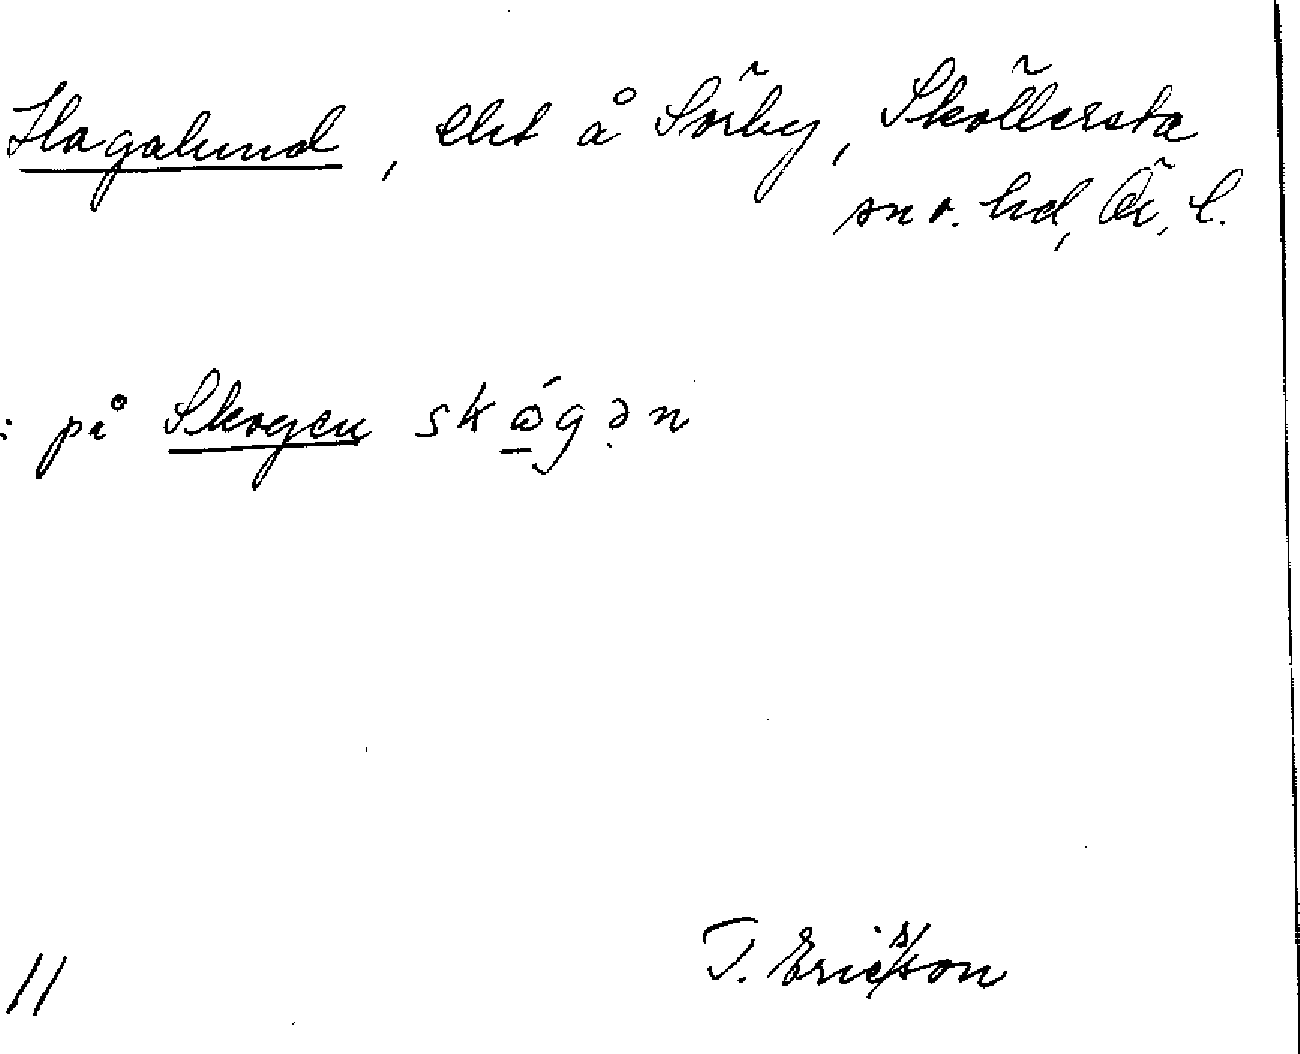 Hagalund, lht å Sörby, Sköllersta
sn o. hd, Ör. l.
: på Skogen skógən
T. Ericsson
11